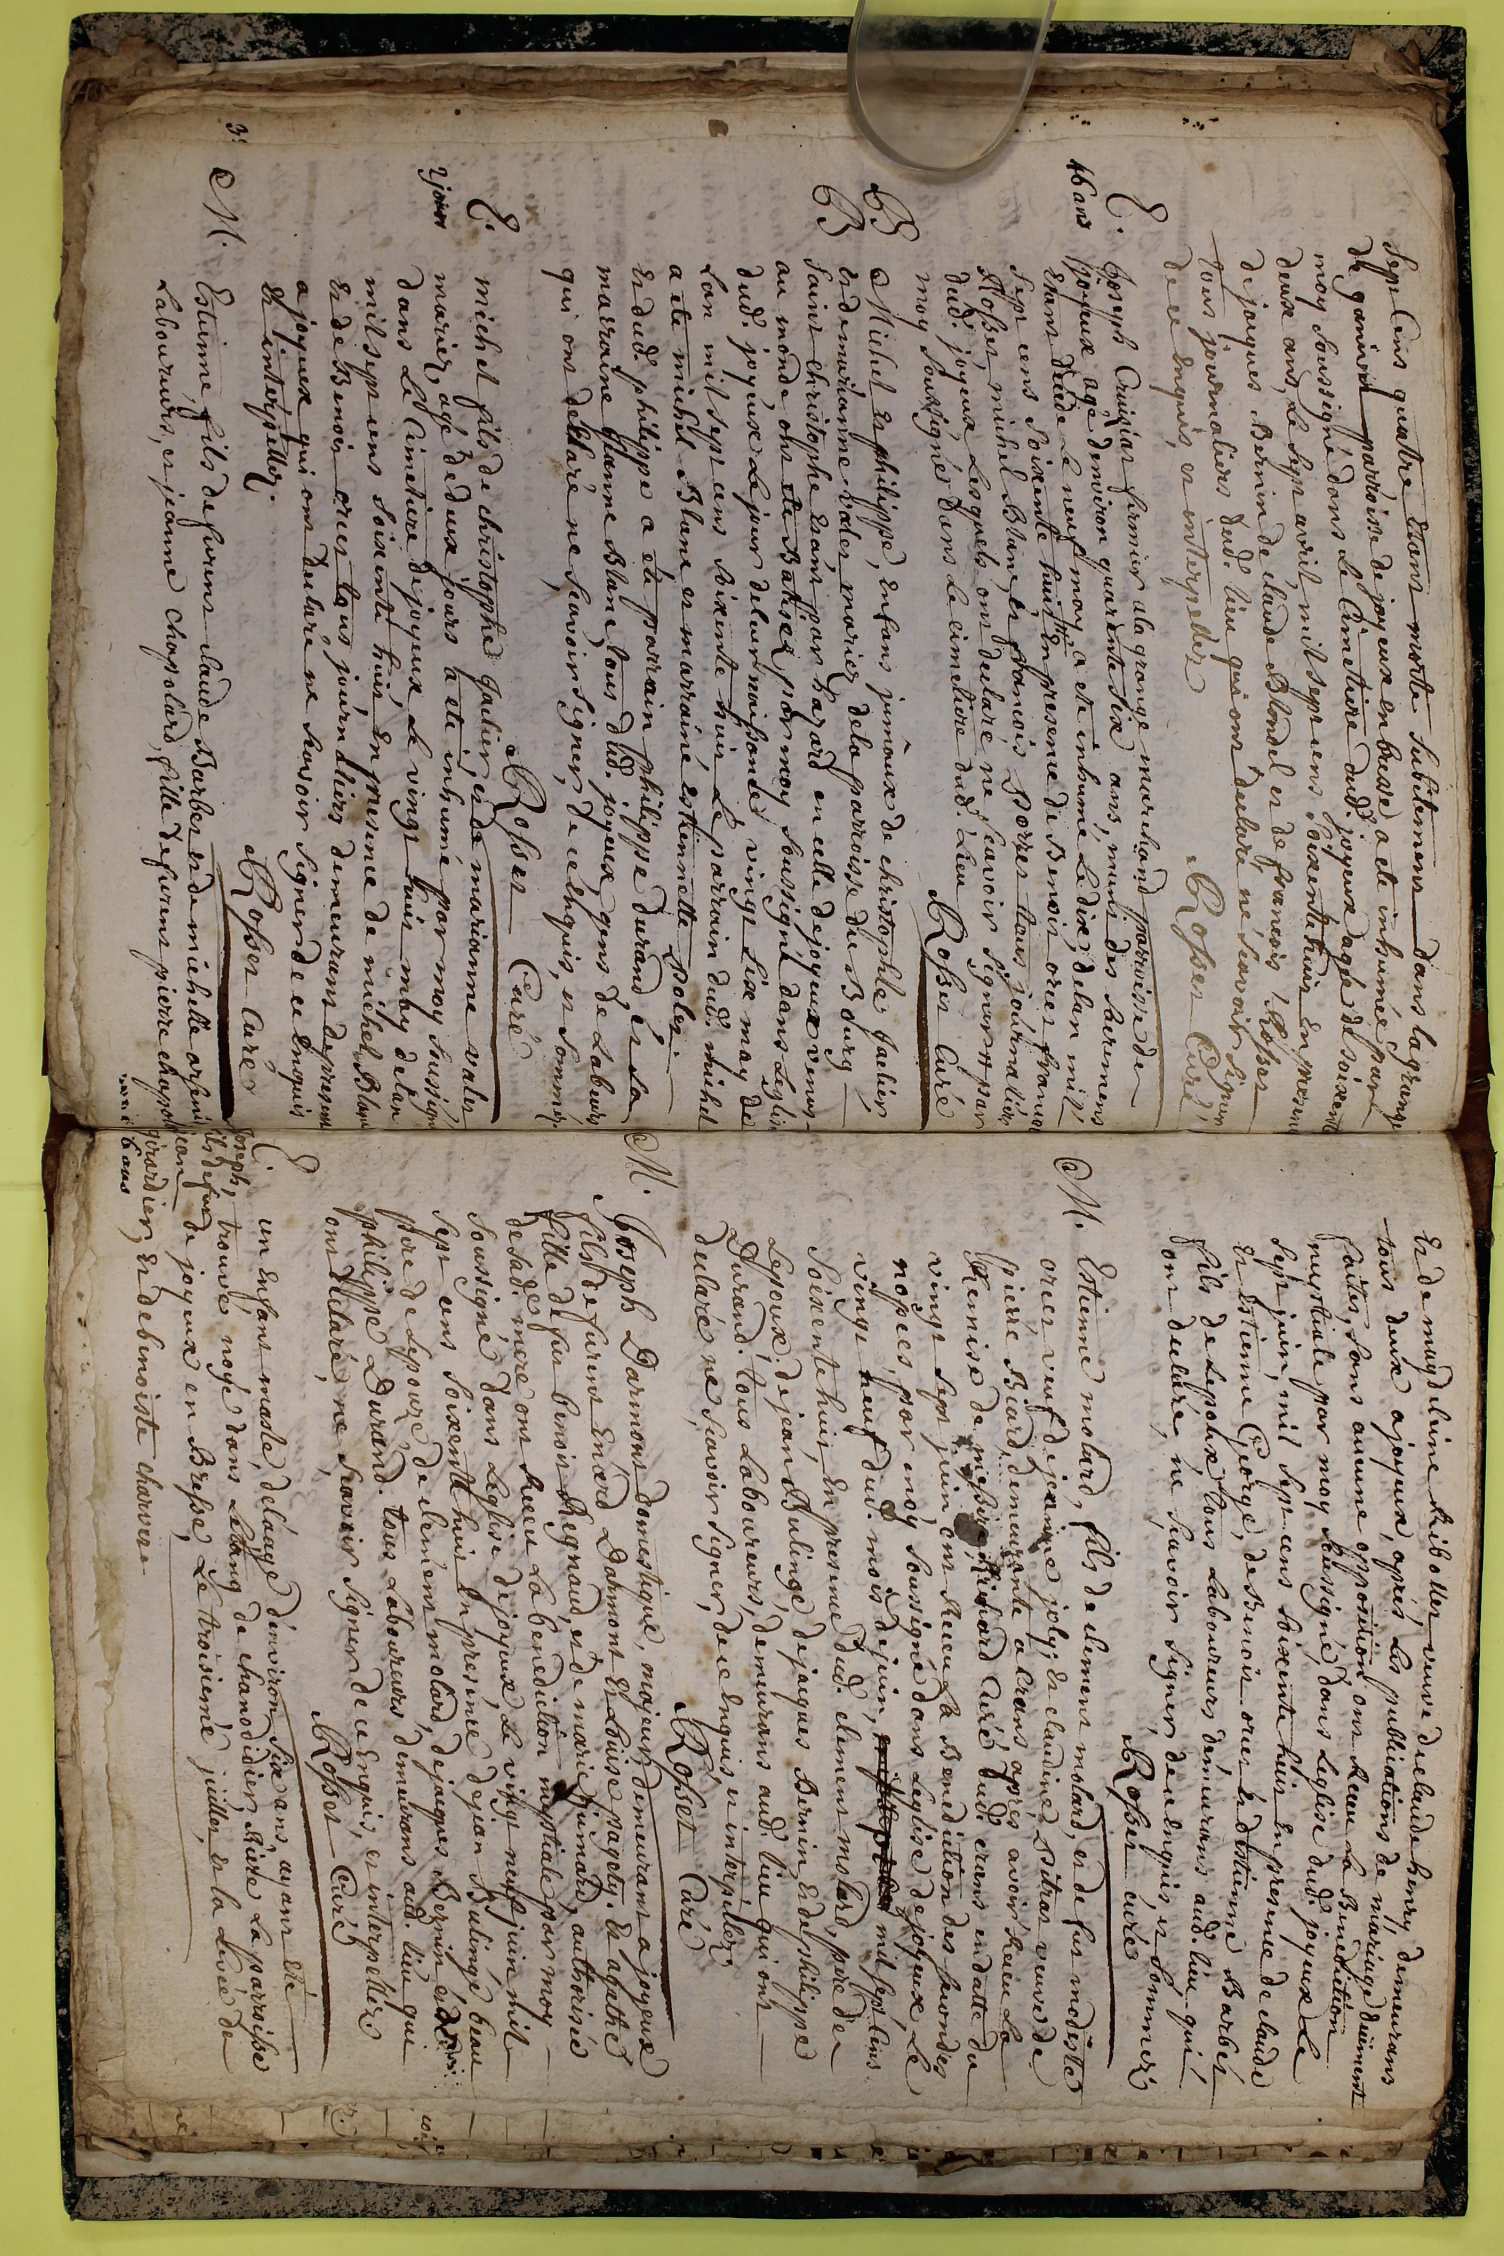 Sept Cens quatre Etant morte subitement dans la grange
de parroisse de joyeux en bresse a ete inhumée par
moy soussigné dans Le Cimetiere dud. joyeux agée de soixente
deux ans, Le Sept avril mil sept cens soixente huit En presence
de joiques Bernin de claude Blondel et de francois Rosset
tous journaliers dud. lieu qui ont declaré ne scavoir signer
de ce enquis, et interpellez
Rosset Curé
E.
46 ans
Joseph Cruiziat fermier a la grange marchand parroisse de
joyeux agé denviron quarante six ans, muni des sacremens
Etant decedé Le neuf may, a eté inhumé Le dix, delan mil
Sept cens soixente huit En presence de Benoit orcet francois
Rosset, michel Blanc, et francois Porret tous journaliers
dud. joyeux Lesquels ont declaré ne scavoir signer par
moy Soussigné dans Le cimetiere dud. Lieu
Rosset Curé
B
B
Michel et philippe, Enfans jumeaux de christophle Galier
et de marianne valet mariez de la parroisse du Bourg
saint christophe Etans par hazard en celle de joyeux venus
au monde, ont ete Batisez par moy Soussigné dans Leglise
dud. joyeux Le jour de leur naissance vingt six may de
Lan mil sept cens soixente huit Le parrain dud. michel
a ete michel Blanc et marraine, estiennette Poler.
Et dud. philippe a été parrain philippe durand et La
marraine jeanne Blanc tous dud. joyeux gens de Labeurs
qui ont declaré ne Scavoir Signer, de ce Enquis, et Sommez.
Rosset Curé
E.
2 jours
michel fils de christophe galier, et de marianne valet
mariez, agé de deux jours a eté inhumé par moy Sussigné
dans Le Cimetiere de joyeux Le vingt huit may de lan
mil sept cens soixente huit, En presence de michel Blanc
Et de Benoit orcet tous journaliers demeurant de present
a joyeux qui ont declaré ne Scavoir Signer de ce Enquis
Et interpellez.
Rosset Curé
3.
M.
Estienne, fils de furent claude Barbet et de michelle
Laboureurs, et jeanne chapolard, fille de furent pierre chapolard
Et de magdeleine Ribollet veuve de claude henry, demeurans
tous deux a joyeux, aprés Les publications de mariage duëment
faites, sans aucune opposition ont Receu La Benediction
nuptiale par moy Soussigné, dans Leglise dud. joyeux Le
Sept juin, mil Sept cens soixente huit En presence de claude
et Estienne George, de Benoit orcet et destienne Barbet
fils de Lepoux, tous Laboureurs demeurans aud. lieu qui
ont declaré, ne Scavoir Signer de ce Enquis, et Sommez
Rosset curé
M.
Estienne molard, fils de clement molard, et de fut modeste
orcet veuf de jeanne joly; Et claudine Litras veuve de
pierre Biard, demeurante a crans apres avoir Receu La
Remise de messire Richard Curé dud. crans en datte du
vingt Sept juin, ont Receu La Benediction des secondes
nopces, par moy Soussigné dans Leglise de joyeux, Le
vingt neuf dud. mois de juin, mil sept cens
Soixente huit, En presence dud. clement molard, pere de
Lepoux. de jean Bulinge, de jaques Bernin, et de philippe
Durand. tous Laboureurs, demeurans aud. lieu qui ont
declaré ne Scavoir Signer, de ce Enquis et interpellez,
Rosset Curé
M.
Joseph Darmont domestique, majeur demeurant a joyeux
fils de furent Enard Darmont et Louise pagety. Et agathe
fille de fut benoit Regnaud, et de marie simard, authorisée
de sad. mere ont Receu La benediction nuptiale par moy
Soussigné dans Leglise de joyeux, Le vingt neuf juin mil
Sept cens soixente huit En presence de jean Bulinge beau
pere de Lepouze de clement molard, de jaques Bernin et de
philippe Durand. tous Laboureurs demeurans aud. lieu qui
ont declaré, ne Scavoir Signer de ce Enquis, et interpellez
Rosset Curé
E.
Joseph,
fils de
jean
girardier, Et de benoiste charvet
6 ans
un Enfant masle, de l'aage d'environ six ans, ayant eté
trouvé noyé dans Letang de chanodier, Riere La parroisse
de joyeux en Bresse, Le troisieme juillet, et la Levée de